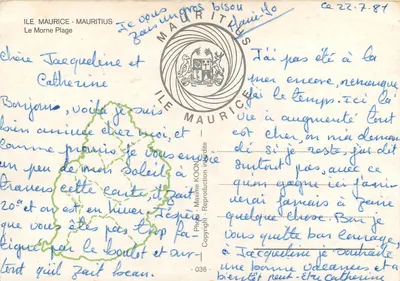 ILE MAURICE - MAURITIUS
Le Morne Plage
Chère Jacqueline et
Catherine
Bonjour, voilà je suis
bien arrivée chez moi, et
comme promis je vous envoie
un peu de mon soleil à
travers cette carte, il fait
20° et on est en hiver. J'espère
que vous êtes pas trop fa-
tigué par le boulot et sur-
tout qu'il fait beau.
Je vous
fais un gros bisou
MAURITIUS
ILE MAURICE
Photo : Maxime KOON
Copyright - Reproduction interdite
- 036 -
Ce 22.7.81
J'ai pas été à la
mer encore, remarque
j'ai le temps. Ici la
vie a augmenté tout
est cher, on m'a deman-
dé si je reste, j'ai dit
surtout pas, avec ce
qu'on gagne ici j'arri-
verai jamais à faire
quelque chose. Bon je
vous quitte bon courage,
à Jacqueline je souhaite
une bonne vacances et à
bientôt peut-être Catherine